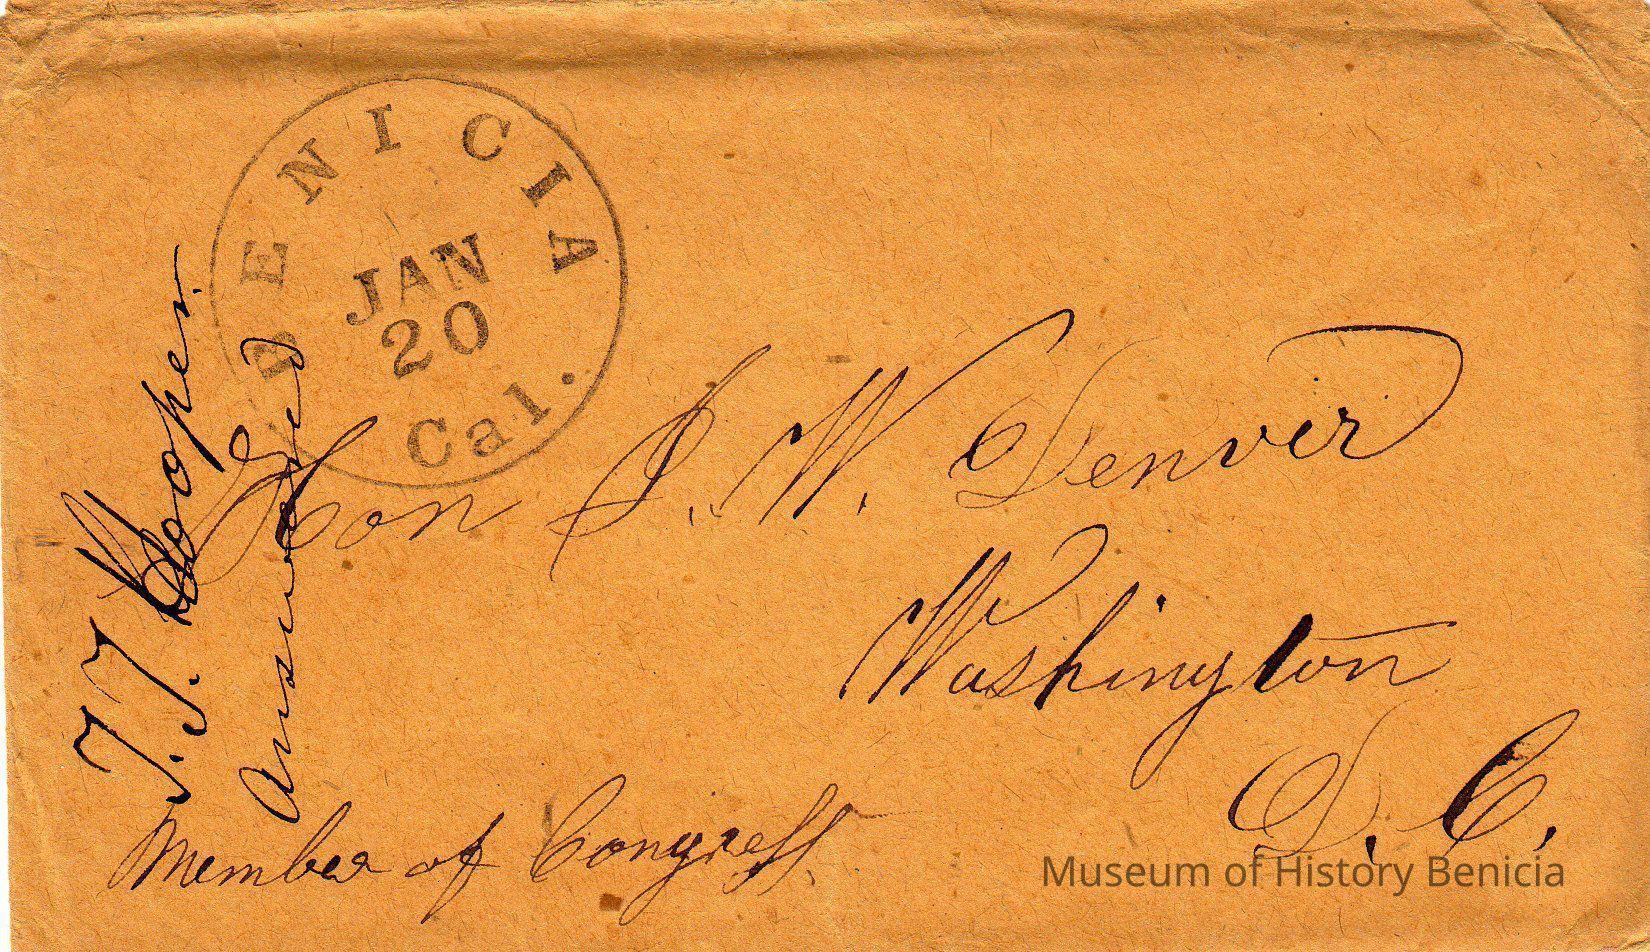 BENICIA
JAN
20
Cal.
T. T. Hooper.
Answered
Hon J. W. Denver
Washington
D. C.
Member of Congress.
Museum of History Benicia